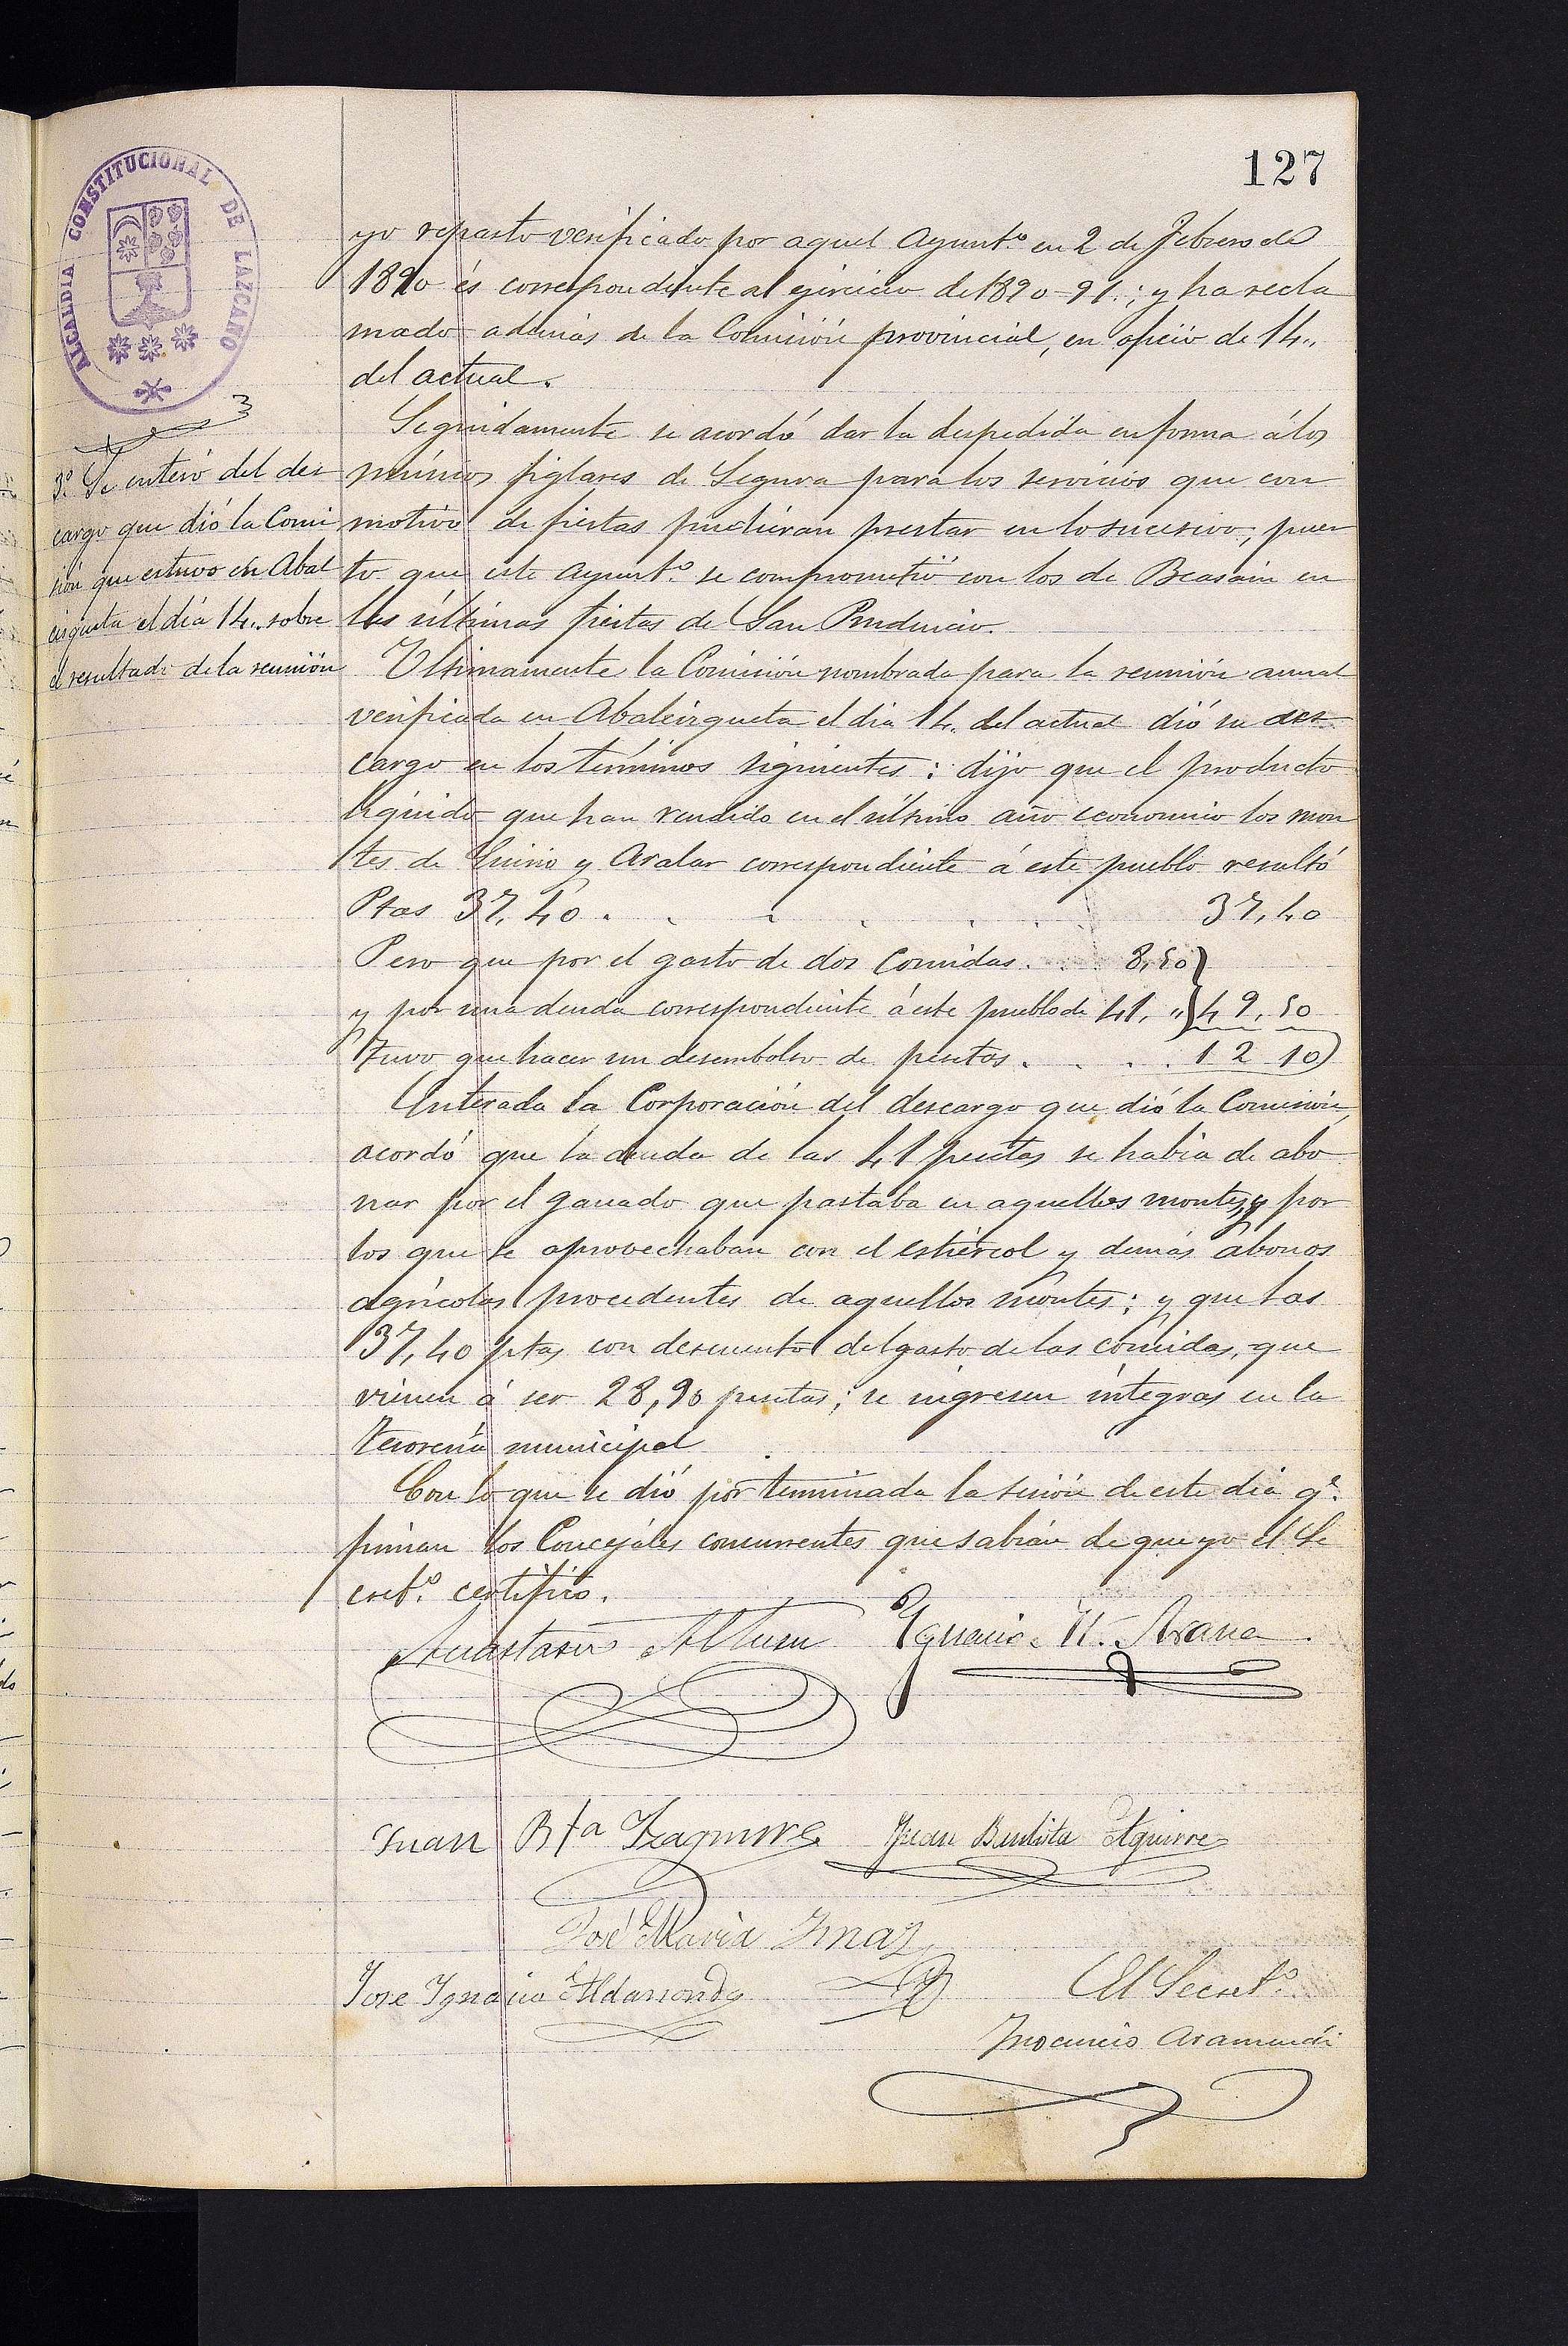 127
ALCALDIA CONSTITUCIONAL DE LAZCANO
yo reparto verificado por aquel Ayunt.º en 2 de Febrero de
1890 és correspondiente al ejercicio de 1890-91.; y ha recla
mado además de la Comisión provincial, en oficio de 14.,
del actual.
Seguidamente se acordó dar la despedida en forma á los
músicos juglares de Segura para los servicios que con
motivo de fiestas pudieran prestar en lo sucesivo; pues
to que este Ayunt.º se comprometió con los de Beasain en
las últimas fiestas de San Prudencio.
3º. Se enteró del des
cargo que dió la Comi
sión que estuvo en Abal
cisqueta el día 14., sobre
el resultado de la reunión
Ultimamente la Comisión nombrada para la reunión anual
verificada en Abalcisqueta el dia 14. del actual dió su des
cargo en los términos siguientes: dijo que el producto
liquido que han rendido en el último año economico los mon
tes de Enirio y Aralar correspondiente á este pueblo resultó
Ptas 37,40 . . . . . . 37,40
Pero que por el gasto de dos comidas . . . 8,50
y por una deuda correspondiente á este pueblo de 41, " 49,50
tuvo que hacer un desembolso de pesetas . . . . 12 10
Enterada la Corporación del descargo que dió la Comisión,
acordó que la deuda de las 41 pesetas se habia de abo
nar por el ganado que pastaba en aquellos montes, y por
los que se aprovechaban con el estiércol y demás abonos
agrícolas procedentes de aquellos montes; y que las
37,40 ptas con descuento del gasto de las comidas, que
vienen á ser 28,90 pesetas; se ingresen integras en la
Tesorería municipal
Con lo que se dió por terminada la sesión de este dia q.e
firman los Concejales concurrentes que sabían de que yo el Se
cret.º certifico.
Anastasio Altuna Ignacio N. Arana
Juan Bta Izaguirre Juan Bautista Aguirre
José Maria Imaz
Jose Ygnacio Aldasoro
El Secret.º
Inocencio Aramendi